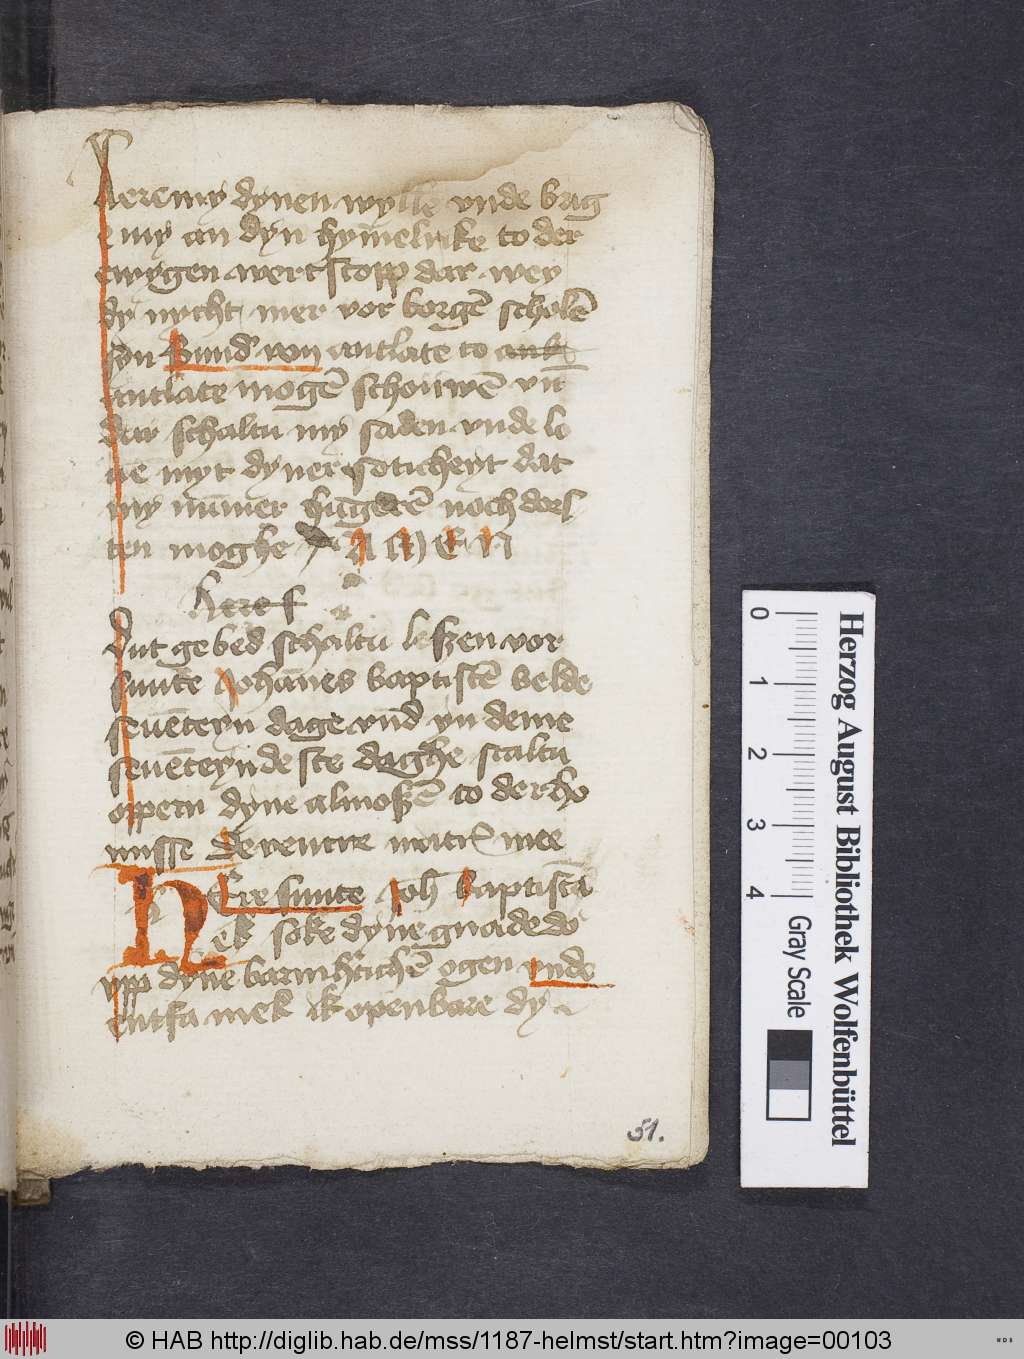 leremy dynen wylle vnde brīg
e my an dyn hym̄elryke to der
ewygen wertscopp dar wey
dy nycht mer vor borgē scholē
syn Sund' von antlate to antl
antlate mogē schouwē vn̄
dar schaltu my saden vnde le
uē myt dyner soticheyt dat
my num̄er hūgerē noch dors
ten moghe AMEN
Here s
Dut gebed schaltu leszen vor
sunte Johānes baptistē belde
seuēteyn dage vn̄d yn deme
seuēteyndesten daghe scaltu
oppern dyne almoszē to der
misse De ventre matr̄ mee
HEre sunte Joh̄ baptistā
ek soke dyne gnade do
vpp dyne barmh'tichē ogen vnde
entfa mek ik openbare dy
51.
Herzog August Bibliothek Wolfenbüttel
0 1 2 3 4
Gray Scale
© HAB http://diglib.hab.de/mss/1187-helmst/start.htm?image=00103